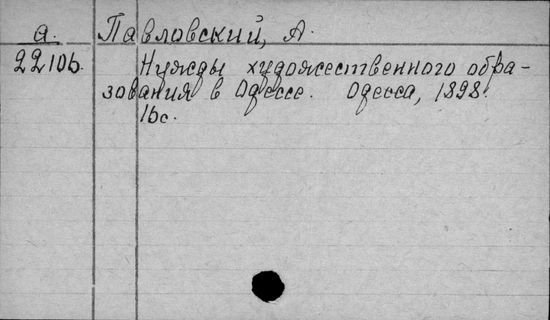 а. Павловский, А.
22106. Нужды художественного обра-
зования в Одессе. Одесса, 1898.
16с.